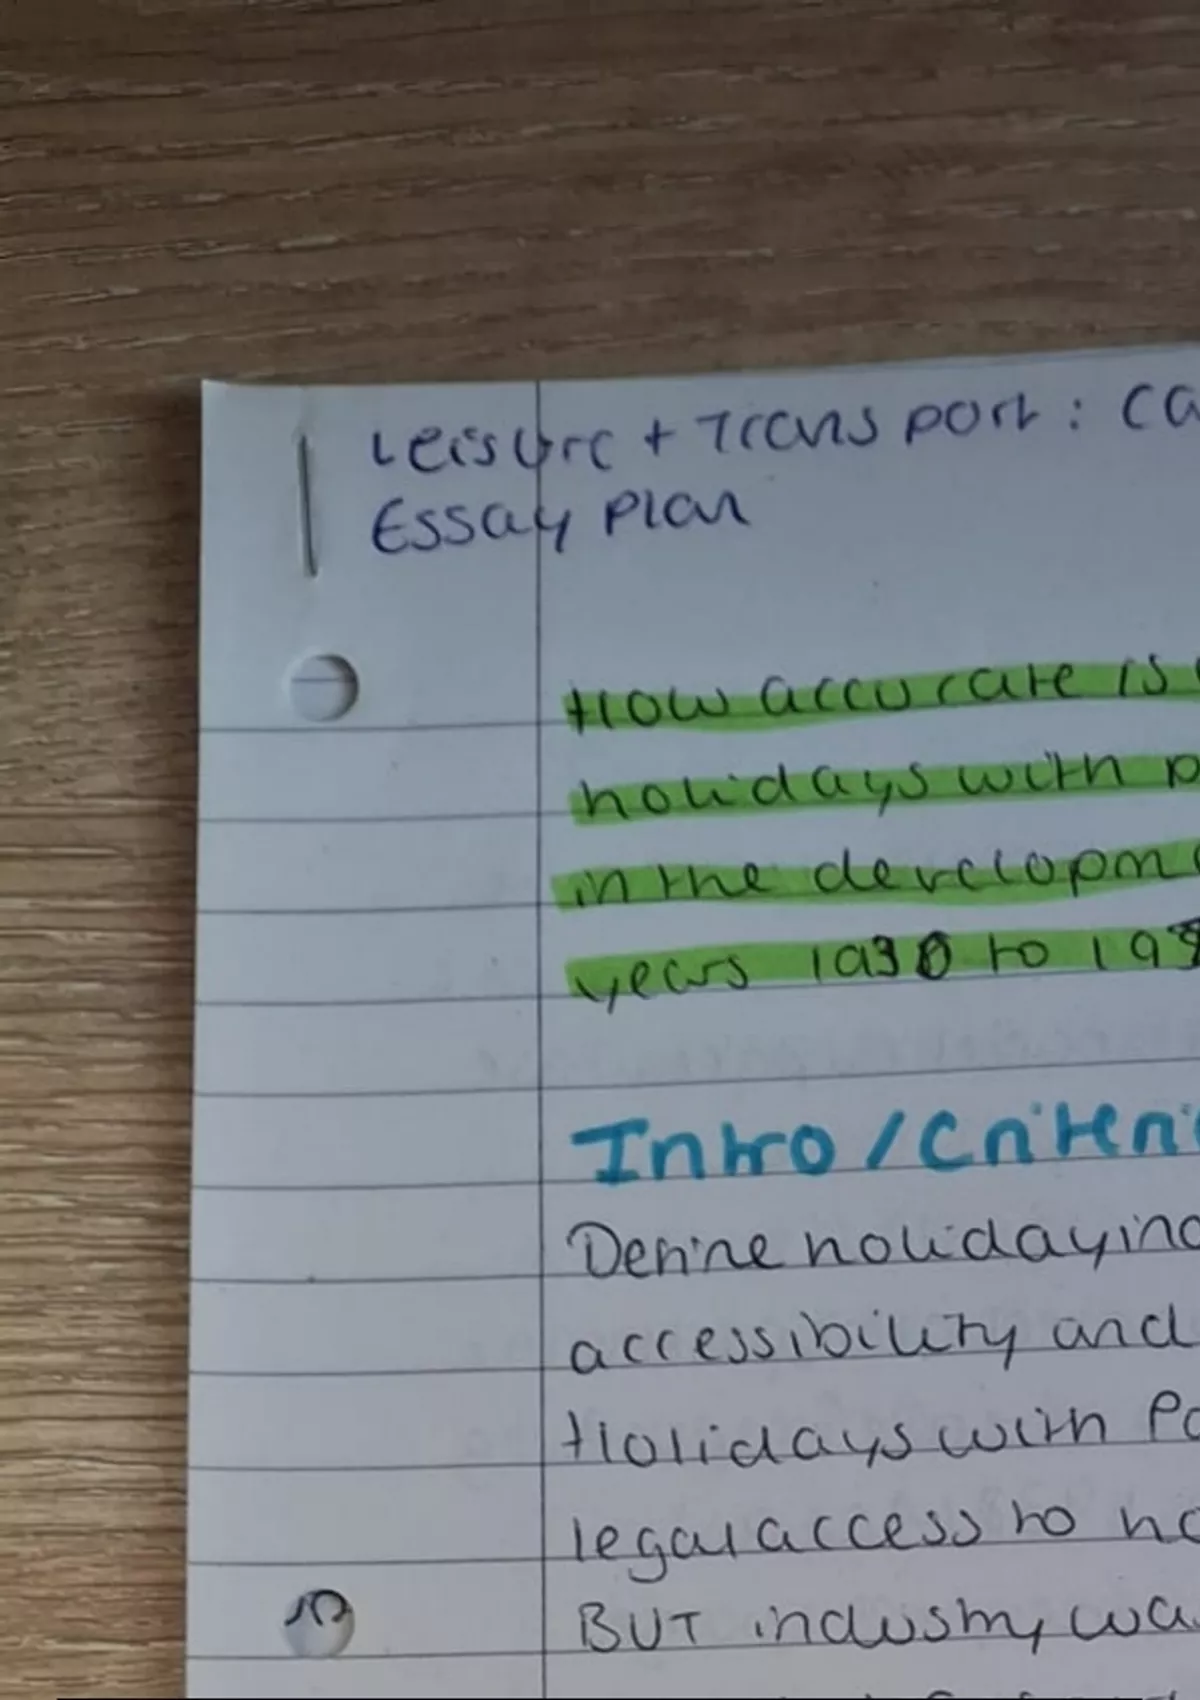 Leisure + Transport: Ca
Essay Plan
How accurate is
holidays with p
in the developm
years 1930 to 19
Intro / Criteri
Define holidaying
accessibility and
Holidays with Pa
legal access to ho
BUT industry was